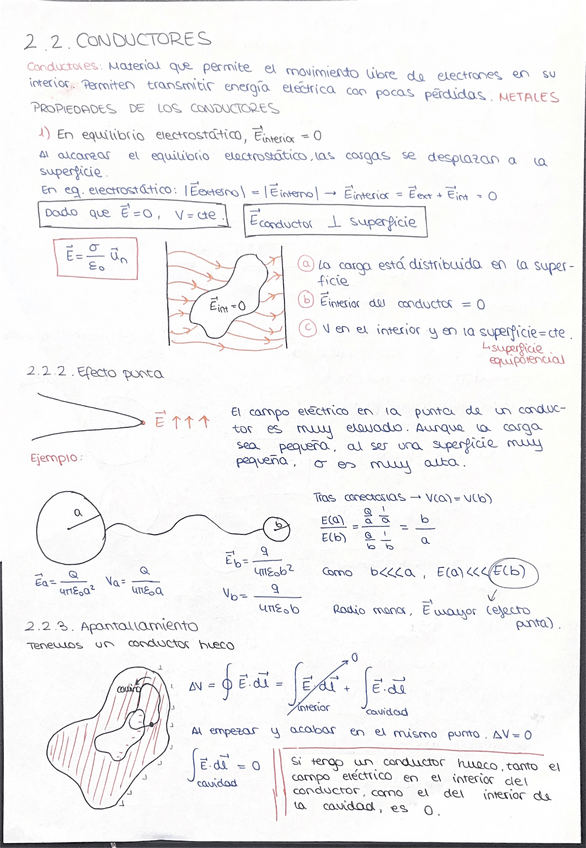 2.2. CONDUCTORES
Conductores: Material que permite el movimiento libre de electrones en su
interior. Permiten transmitir energía eléctrica con pocas pérdidas. METALES
PROPIEDADES DE LOS CONDUCTORES
1) En equilibrio electrostático, E⃗interior = 0
Al alcanzar el equilibrio electrostático, las cargas se desplazan a la
superficie.
En eq. electrostático: |E⃗externo| = |E⃗interno| → E⃗interior = E⃗ext + E⃗int = 0
Dado que E⃗=0, V=cte.
E⃗conductor ⊥ superficie
E⃗ = σ/ε₀ u⃗n
E⃗int=0
a) La carga está distribuida en la super-
ficie
b) E⃗interior del conductor = 0
c) V en el interior y en la superficie=cte.
↳superficie
equipotencial
2.2.2. Efecto punta
E⃗ ↑↑↑
El campo eléctrico en la punta de un conduc-
tor es muy elevado. Aunque la carga
sea pequeña, al ser una superficie muy
pequeña, σ es muy alta.
Ejemplo:
a
b
Tras conectarlas → V(a)=V(b)
E(a)/E(b) = (Q/a 1/a)/(Q/b 1/b) = b/a
E⃗a = Q/4πε₀a² Va = Q/4πε₀a
E⃗b = q/4πε₀b²
Vb = q/4πε₀b
Como b<<<a, E(a)<<<E(b)
Radio menor, E⃗ mayor (efecto
punta).
2.2.3. Apantallamiento
Tenemos un conductor hueco
ΔV = ∮ E⃗·dl⃗ = ∫interior E⃗·dl⃗ + ∫cavidad E⃗·dl⃗
0
Al empezar y acabar en el mismo punto, ΔV=0
∫cavidad E⃗·dl⃗ = 0
Si tengo un conductor hueco, tanto el
campo eléctrico en el interior del
conductor, como el del interior de
la cavidad, es 0.